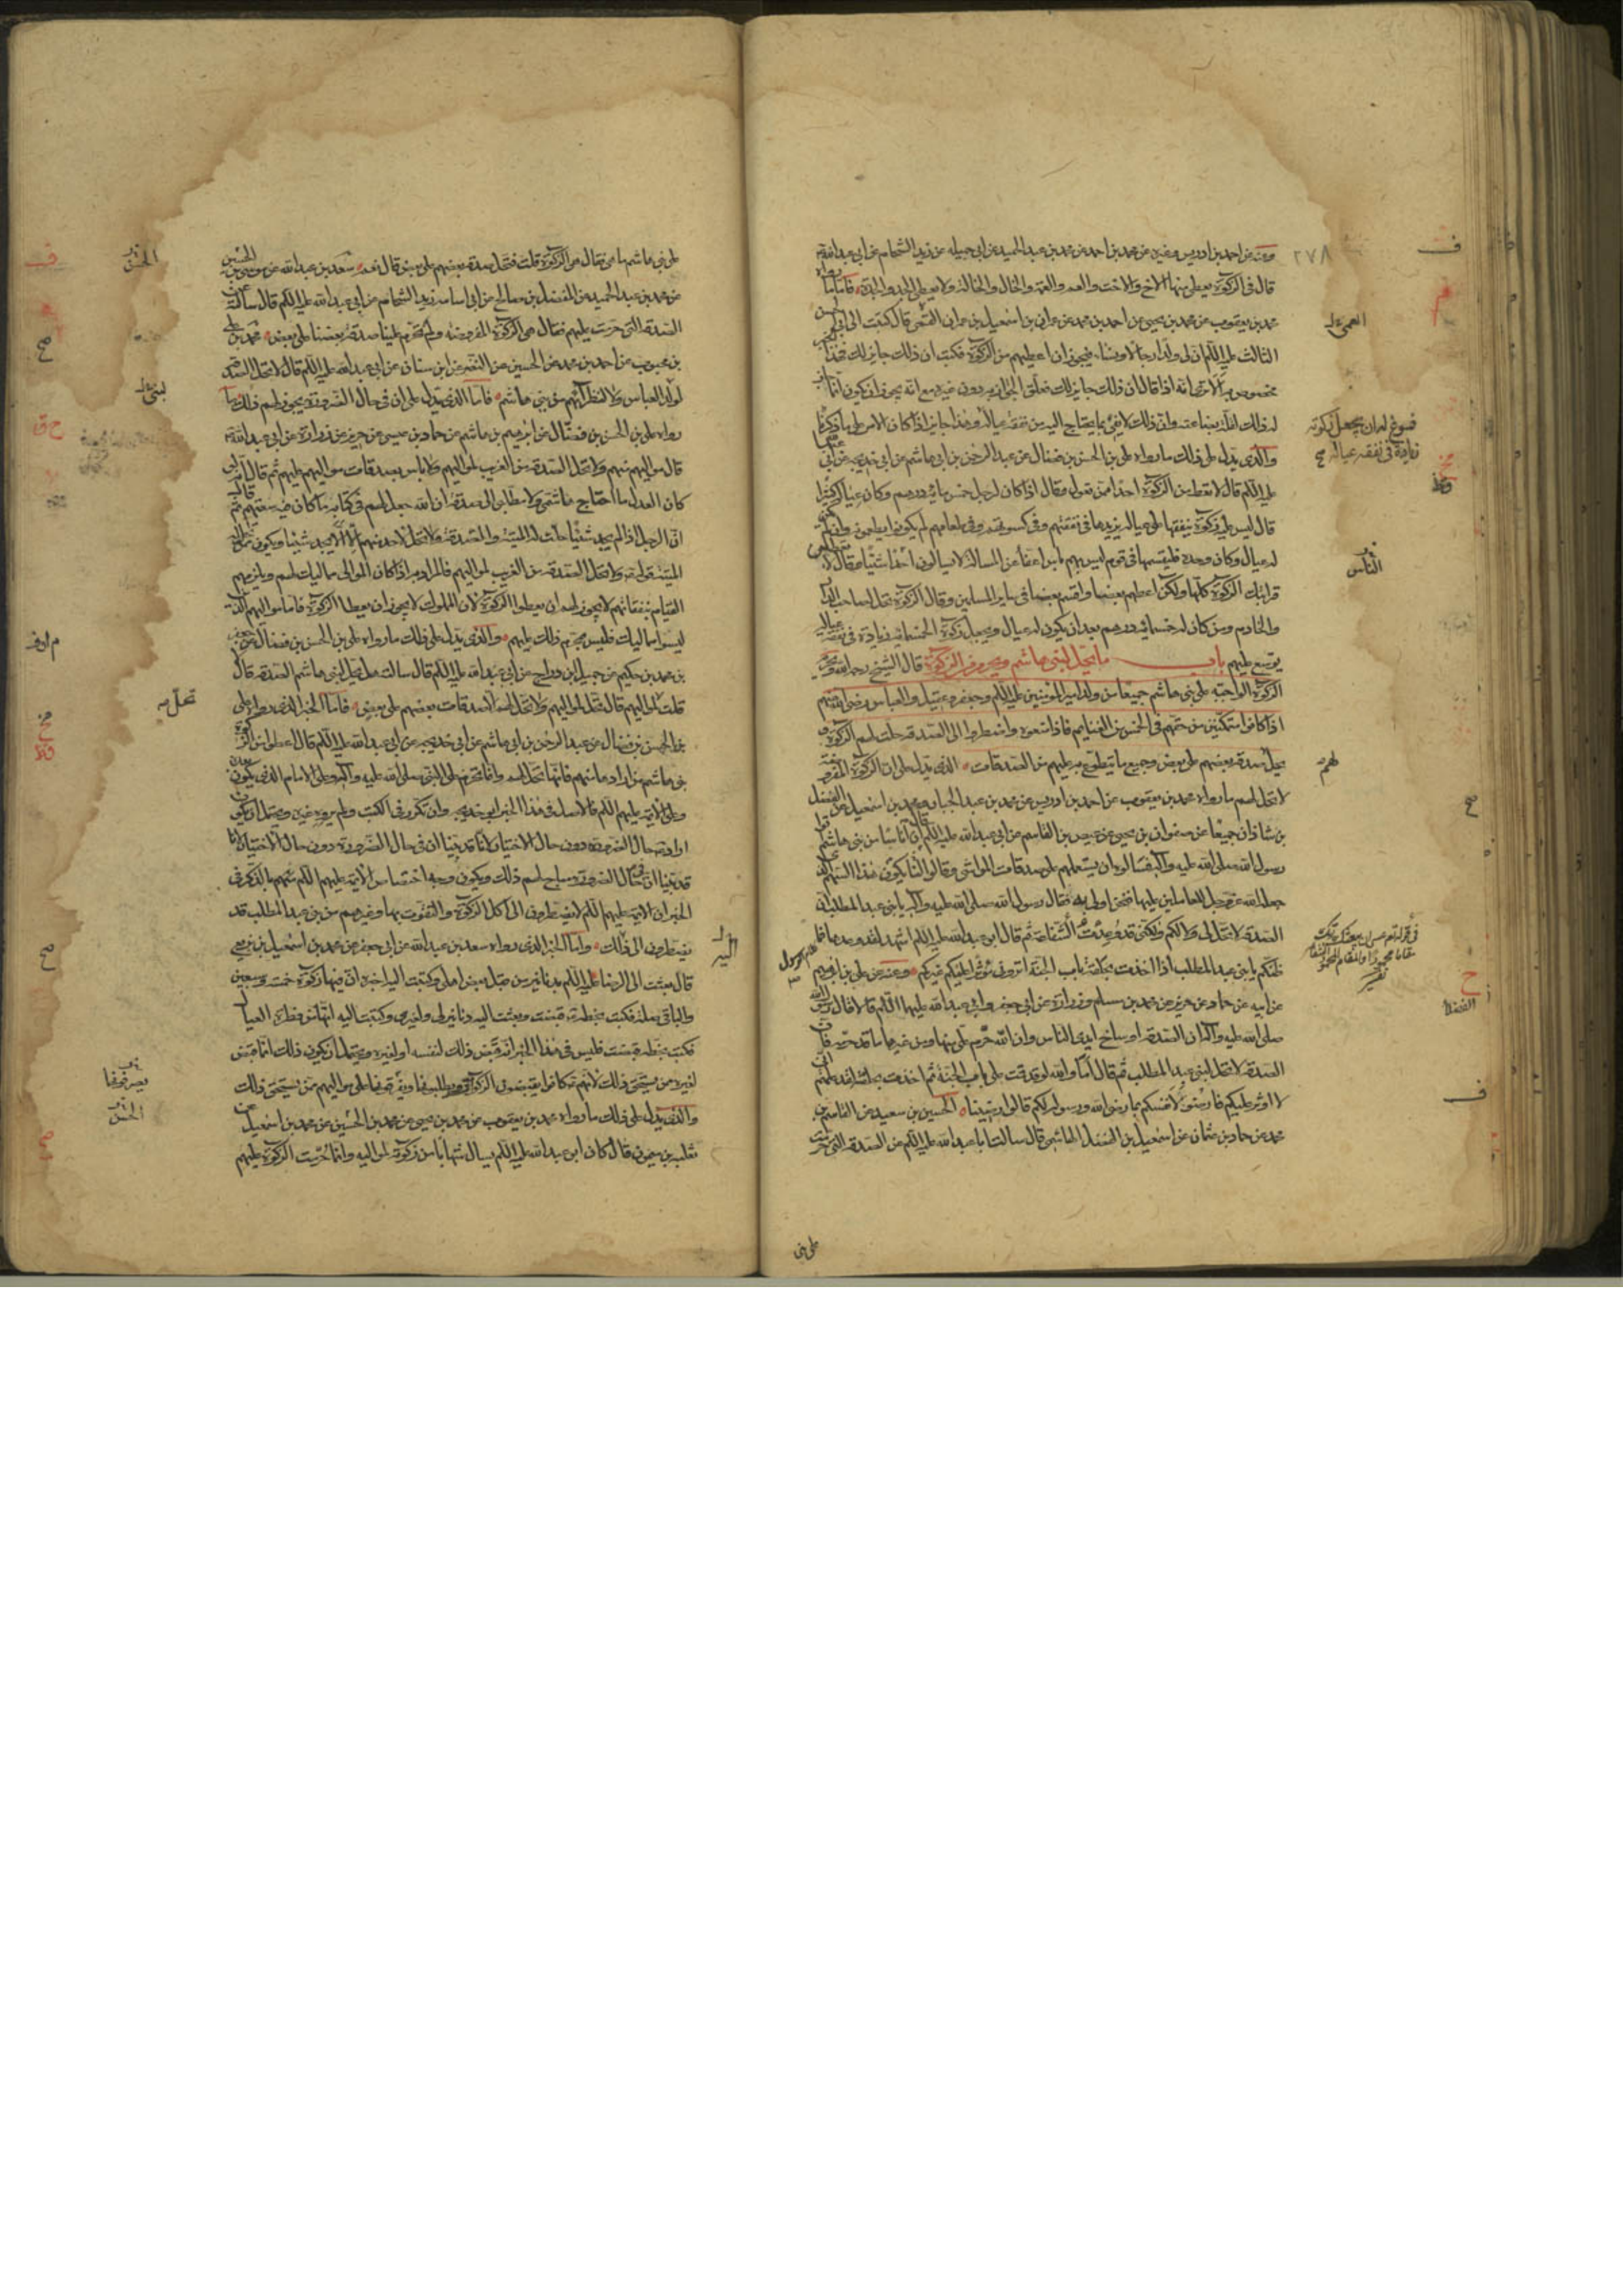 ٢٧٨
وعنه عن احمد بن ادريس وغيره عن محمد بن احمد عن محمد بن عبد الحميد عن ابي جميلة عن زيد الشحام عن ابي عبد الله
قال في الزكوة يعطى منها الاخ والاخت والعم والعمة والخال والخالة ولا يعطى الجد والجدة فاما ما رواه
محمد بن يعقوب عن محمد بن يحيى عن احمد بن محمد عن عمران بن اسمعيل بن عمران القمي قال كتبت الى ابي الحسن
الثالث عليه السلم ان لي ولدا رجالا ونساء فيجوز ان اعطيهم من الزكوة فكتب ان ذلك جايز لك فهذا الخبر
مخصوص به الا ترى انه اذا قال ان ذلك جايز لك فعلق الجواز به دون غيره مع انه يجوز ان يكون انما
والذي يدل على ذلك ما رواه علي بن الحسن بن فضال عن عبد الرحمن بن ابي هاشم عن ابي خديجة عن ابي عبد الله
عليه السلم قال لا تعط من الزكوة احدا ممن تعول وقال اذا كان لرجل خمس مائة درهم وكان عياله كثيرا
قال ليس عليه زكوة ينفقها على عياله يزيدها في نفقتهم وفي كسوتهم وفي طعام لم يكونوا يطعمونه وان لم يكن
له عيال وكان وحده فليقسمها في قوم ليس بهم باس اعفاء عن المسالة لا يسالون احدا شيئا وقال لا تعطين
قرابتك الزكوة كلها ولكن اعطهم بعضا واقسم بعضا في ساير المسلمين وقال الزكوة تحل لصاحب الدار
والخادم ومن كان له خمسمائة درهم بعد ان يكون له عيال ويجعل زكوة الخمسمائة زيادة في نفقة عياله
يوسع عليهم باب ما يحل لبني هاشم ويحرم من الزكوة قال الشيخ رحمه الله وتحرم
الزكوة الواجبة على بني هاشم جميعا من ولد امير المؤمنين عليه السلم وجعفر وعقيل والعباس رضي الله عنهم
اذا كانوا متمكنين من حقهم في الخمس من الغنايم فاذا منعوه واضطروا الى الصدقة حلت لهم الزكوة و
تحل صدقة بعضهم على بعض وجميع ما يتطوع به عليهم من الصدقات الذي يدل على ان الزكوة المفروضة
لا تحل لهم ما رواه محمد بن يعقوب عن احمد بن ادريس عن محمد بن عبد الجبار ومحمد بن اسمعيل عن الفضل
بن شاذان جميعا عن صفوان بن يحيى عن عيص بن القاسم عن ابي عبد الله عليه السلم قال ان اناسا من بني هاشم اتوا
رسول الله صلى الله عليه وآله فسالوه ان يستعملهم على صدقات المواشي وقالوا لنا يكون هذا السهم الذي
جعله الله عز وجل للعاملين عليها فنحن اولى به فقال رسول الله صلى الله عليه وآله يا بني عبد المطلب ان
الصدقة لا تحل لي ولا لكم ولكني قد وعدت الشفاعة ثم قال ابو عبد الله عليه السلم اشهد لقد وعدها فما
ظنكم يا بني عبد المطلب اذا اخذت بحلقة باب الجنة اتروني مؤثرا عليكم غيركم وعنه عن علي بن ابرهيم
عن ابيه عن حماد عن حريز عن محمد بن مسلم وزرارة عن ابي جعفر وابي عبد الله عليهما السلم قالا قال رسول الله
صلى الله عليه وآله ان الصدقة اوساخ ايدي الناس وان الله حرم علي منها ومن غيرها ما قد حرمه فان
الصدقة لا تحل لبني عبد المطلب ثم قال اما والله لو قد قمت على باب الجنة ثم اخذت بحلقته لقد علمتم اني
لا اوثر عليكم فارضوا لانفسكم بما رضي الله ورسوله لكم قالوا رضينا الحسين بن سعيد عن القاسم بن
محمد عن حماد بن عثمان عن اسمعيل بن الفضل الهاشمي قال سالت ابا عبد الله عليه السلم عن الصدقة التي حرمت
على بني
العمي
فسوغ له ان يجعل زكوته
زيادة في نفقة عياله
الناس
لهم
على بني هاشم ما هي فقال هي الزكوة قلت فتحل صدقة بعضهم على بعض قال نعم سعد بن عبد الله عن موسى بن الحسين
عن محمد بن عبد الحميد عن المفضل بن صالح عن ابي اسامة زيد الشحام عن ابي عبد الله عليه السلم قال سالته عن
الصدقة التي حرمت عليهم فقال هي الزكوة المفروضة ولم تحرم علينا صدقة بعضنا على بعض محمد بن علي
بن محبوب عن احمد بن محمد عن الحسين عن النضر عن ابن سنان عن ابي عبد الله عليه السلم قال لا تحل الصدقة
لولد العباس ولا لنظرائهم من بني هاشم فاما الذي يدل على ان في حال الضرورة يجوز لهم ذلك ما
رواه علي بن الحسن بن فضال عن ابرهيم بن هاشم عن حماد بن عيسى عن حريز عن زرارة عن ابي عبد الله
قال مواليهم منهم ولا تحل الصدقة من الغريب لمواليهم ولا باس بصدقات مواليهم عليهم ثم قال انه لو
كان العدل ما احتاج هاشمي ولا مطلبي الى صدقة ان الله جعل لهم في كتابه ما كان فيه سعتهم ثم قال
ان الرجل اذا لم يجد شيئا حلت له الميتة والصدقة ولا تحل لاحد منهم الا ان لا يجد شيئا ويكون ممن تحل له
الميتة قوله ولا تحل الصدقة من الغريب لمواليهم فالمراد به اذا كان الموالي مماليك لهم ويلزمهم
القيام بنفقاتهم لا يجوز لهم ان يعطوا الزكوة لان المملوك لا يجوز ان يعطا الزكوة فاما مواليهم الذين
ليسوا مماليك فليس محرم ذلك عليهم والذي يدل على ذلك ما رواه علي بن الحسن بن فضال عن جعفر
بن محمد بن حكيم عن جميل بن دراج عن ابي عبد الله عليه السلم قال سالته هل تحل لبني هاشم الصدقة قال لا
قلت لمواليهم قال تحل لمواليهم ولا تحل لهم الا صدقات بعضهم على بعض فاما الخبر الذي رواه علي
بن الحسن بن فضال عن عبد الرحمن بن ابي هاشم عن ابي خديجة عن ابي عبد الله عليه السلم قال اعطوا من الزكوة
بني هاشم من ارادها منهم فانها تحل لهم وانما تحرم على النبي صلى الله عليه وآله وعلى الامام الذي يكون بعده
وعلى الائمة عليهم السلم فالاصل في هذا الخبر ابو خديجة وان تكرر في الكتب ولم يروه غيره ويحتمل ان يكون
اراد به حال الضرورة دون حال الاختيار لانا قد بينا ان في حال الضرورة دون حال الاختيار لانا
قد بينا ان في حال الضرورة مباح لهم ذلك ويكون وجه اختصاص الائمة عليهم السلم منهم بالذكر في
الخبر ان الائمة عليهم السلم لا يضطرون الى اكل الزكوة والتقوت بها وغيرهم من بني عبد المطلب قد
يضطرون الى ذلك واما الخبر الذي رواه سعد بن عبد الله عن ابي جعفر عن محمد بن اسمعيل بن بزيع
قال بعثت الى الرضا عليه السلم بدنانير من قبل بعض اهلي وكتبت اليه اخبره ان فيها زكوة خمسة وسبعين
والباقي صلة فكتب بخطه قبضت وبعثت اليه دنانير لي ولغيري وكتبت اليه انها من فطرة العيال
فكتب بخطه قبضت فليس في هذا الخبر انه قبض ذلك لنفسه او لغيره ويحتمل ان يكون ذلك انما قبض
لغيره ممن يستحق ذلك لانهم كانوا يقبضون الزكوة ويطلبونها ويفرقونها على مواليهم ممن يستحق ذلك
والذي يدل على ذلك ما رواه محمد بن يعقوب عن محمد بن يحيى عن محمد بن الحسين عن محمد بن اسمعيل عن
ثعلبة بن ميمون قال كان ابو عبد الله عليه السلم يسال شهابا من زكوته لمواليه وانما حرمت الزكوة عليهم